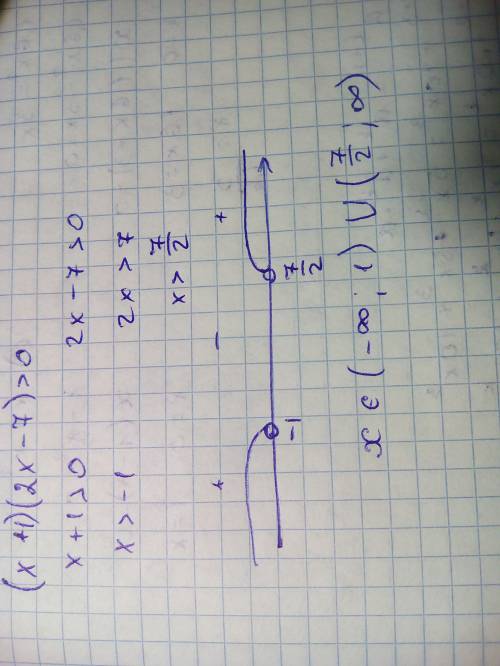 (x+1)(2x-7)>0
x+1>0 2x-7>0
x>-1 2x>7
x>7/2
+ - +
-1 7/2
x ∈ (-∞; 1) ∪ (7/2; ∞)